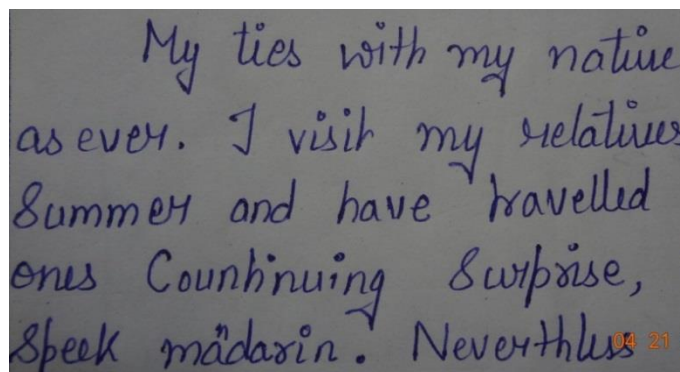 My ties with my native
as ever. I visit my relatives
Summer and have travelled
ones Counhinuing Surprise,
Speek mädarin. Neverthless
04 21